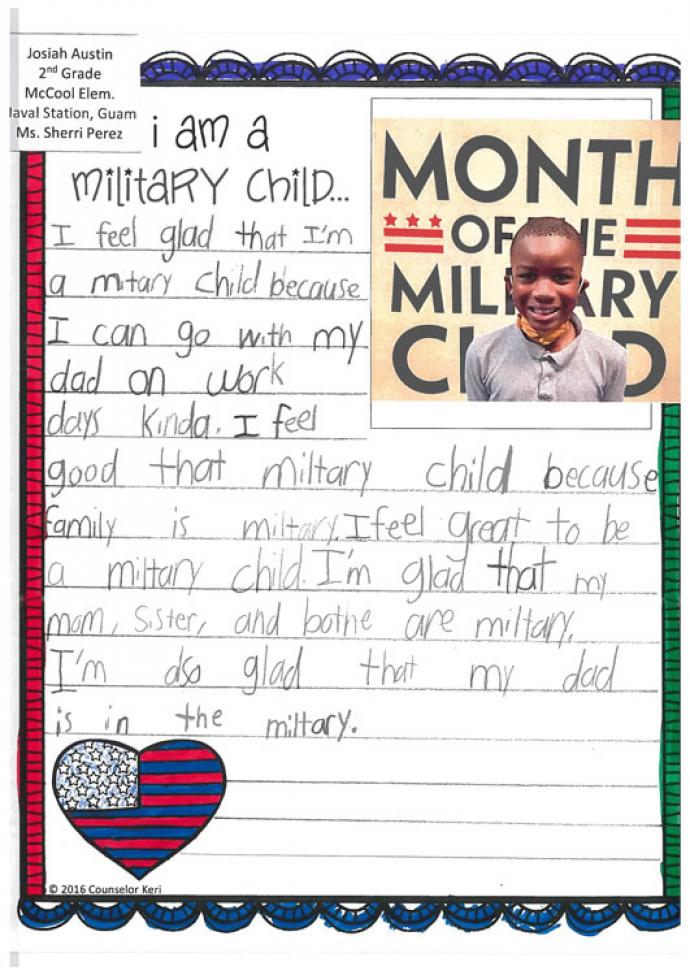 Josiah Austin
2nd Grade
McCool Elem.
laval Station, Guam
Ms. Sherri Perez
i am a
military child...
MONTH
OF THE
MILITARY
CHILD
I feel glad that I'm
a mitary child because
I can go with my
dad on work
days kinda. I feel
good that miltary child because
family is miltary. I feel great to be
a miltary child. I'm glad that my
mom, sister, and bothe are miltary.
I'm also glad that my dad
is in the miltary.
© 2016 Counselor Keri